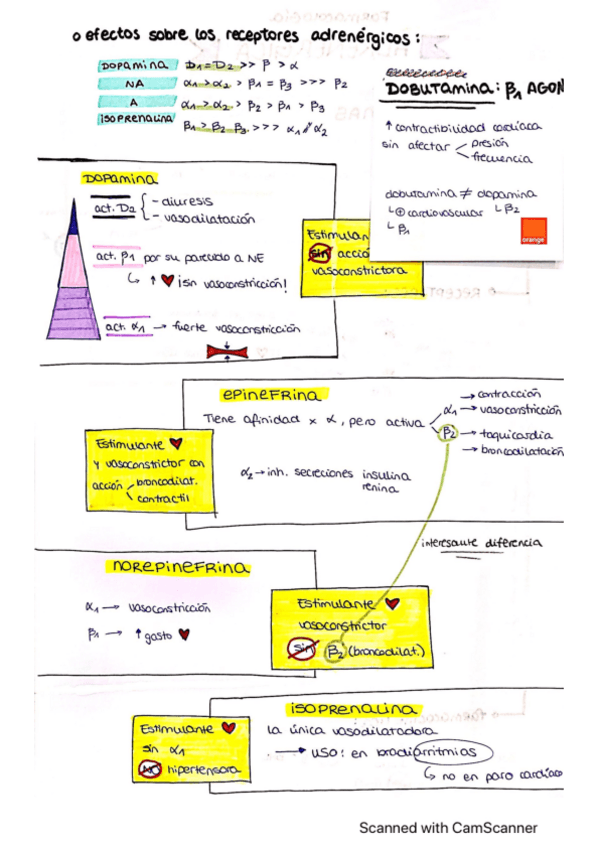 o efectos sobre los receptores adrenérgicos:
DOPAMINA D1=D2 >> β > α
NA α1>α2 > β1 = β3 >>> β2
A α1>α2 > β2 > β1 > β3
ISOPRENALINA β1> β2 β3 >>> α1 // α2
DOBUTAMINA: β1 AGON
↑ contractibilidad cardíaca
sin afectar presión
frecuencia
dobutamina ≠ dopamina
↳ ⊕ cardiovascular ↳ β2
↳ β1
orange
DOPAMINA
act. D2 - diuresis
- vasodilatación
act. β1 por su parecido a NE
↳ ↑ ♥ ¡sin vasoconstricción!
act. α1 → fuerte vasoconstricción
Estimulan
sin acció
vasoconstrictora
EPINEFRINA
Tiene afinidad x α, pero activa
→ contracción
α1 → vasoconstricción
β2 → taquicardia
→ broncodilatación
α2 → inh. secreciones insulina
renina
Estimulante ♥
y vasoconstrictor con
acción broncodilat.
contractil
interesante diferencia
NOREPINEFRINA
α1 → vasoconstricción
β1 → ↑ gasto ♥
Estimulante ♥
vasoconstrictor
sin β2 (broncodilat.)
ISOPRENALINA
La única vasodilatadora
→ USO: en bradiarritmias
↳ no en paro cardíaco
Estimulante ♥
sin α1
NO hipertensora
Scanned with CamScanner